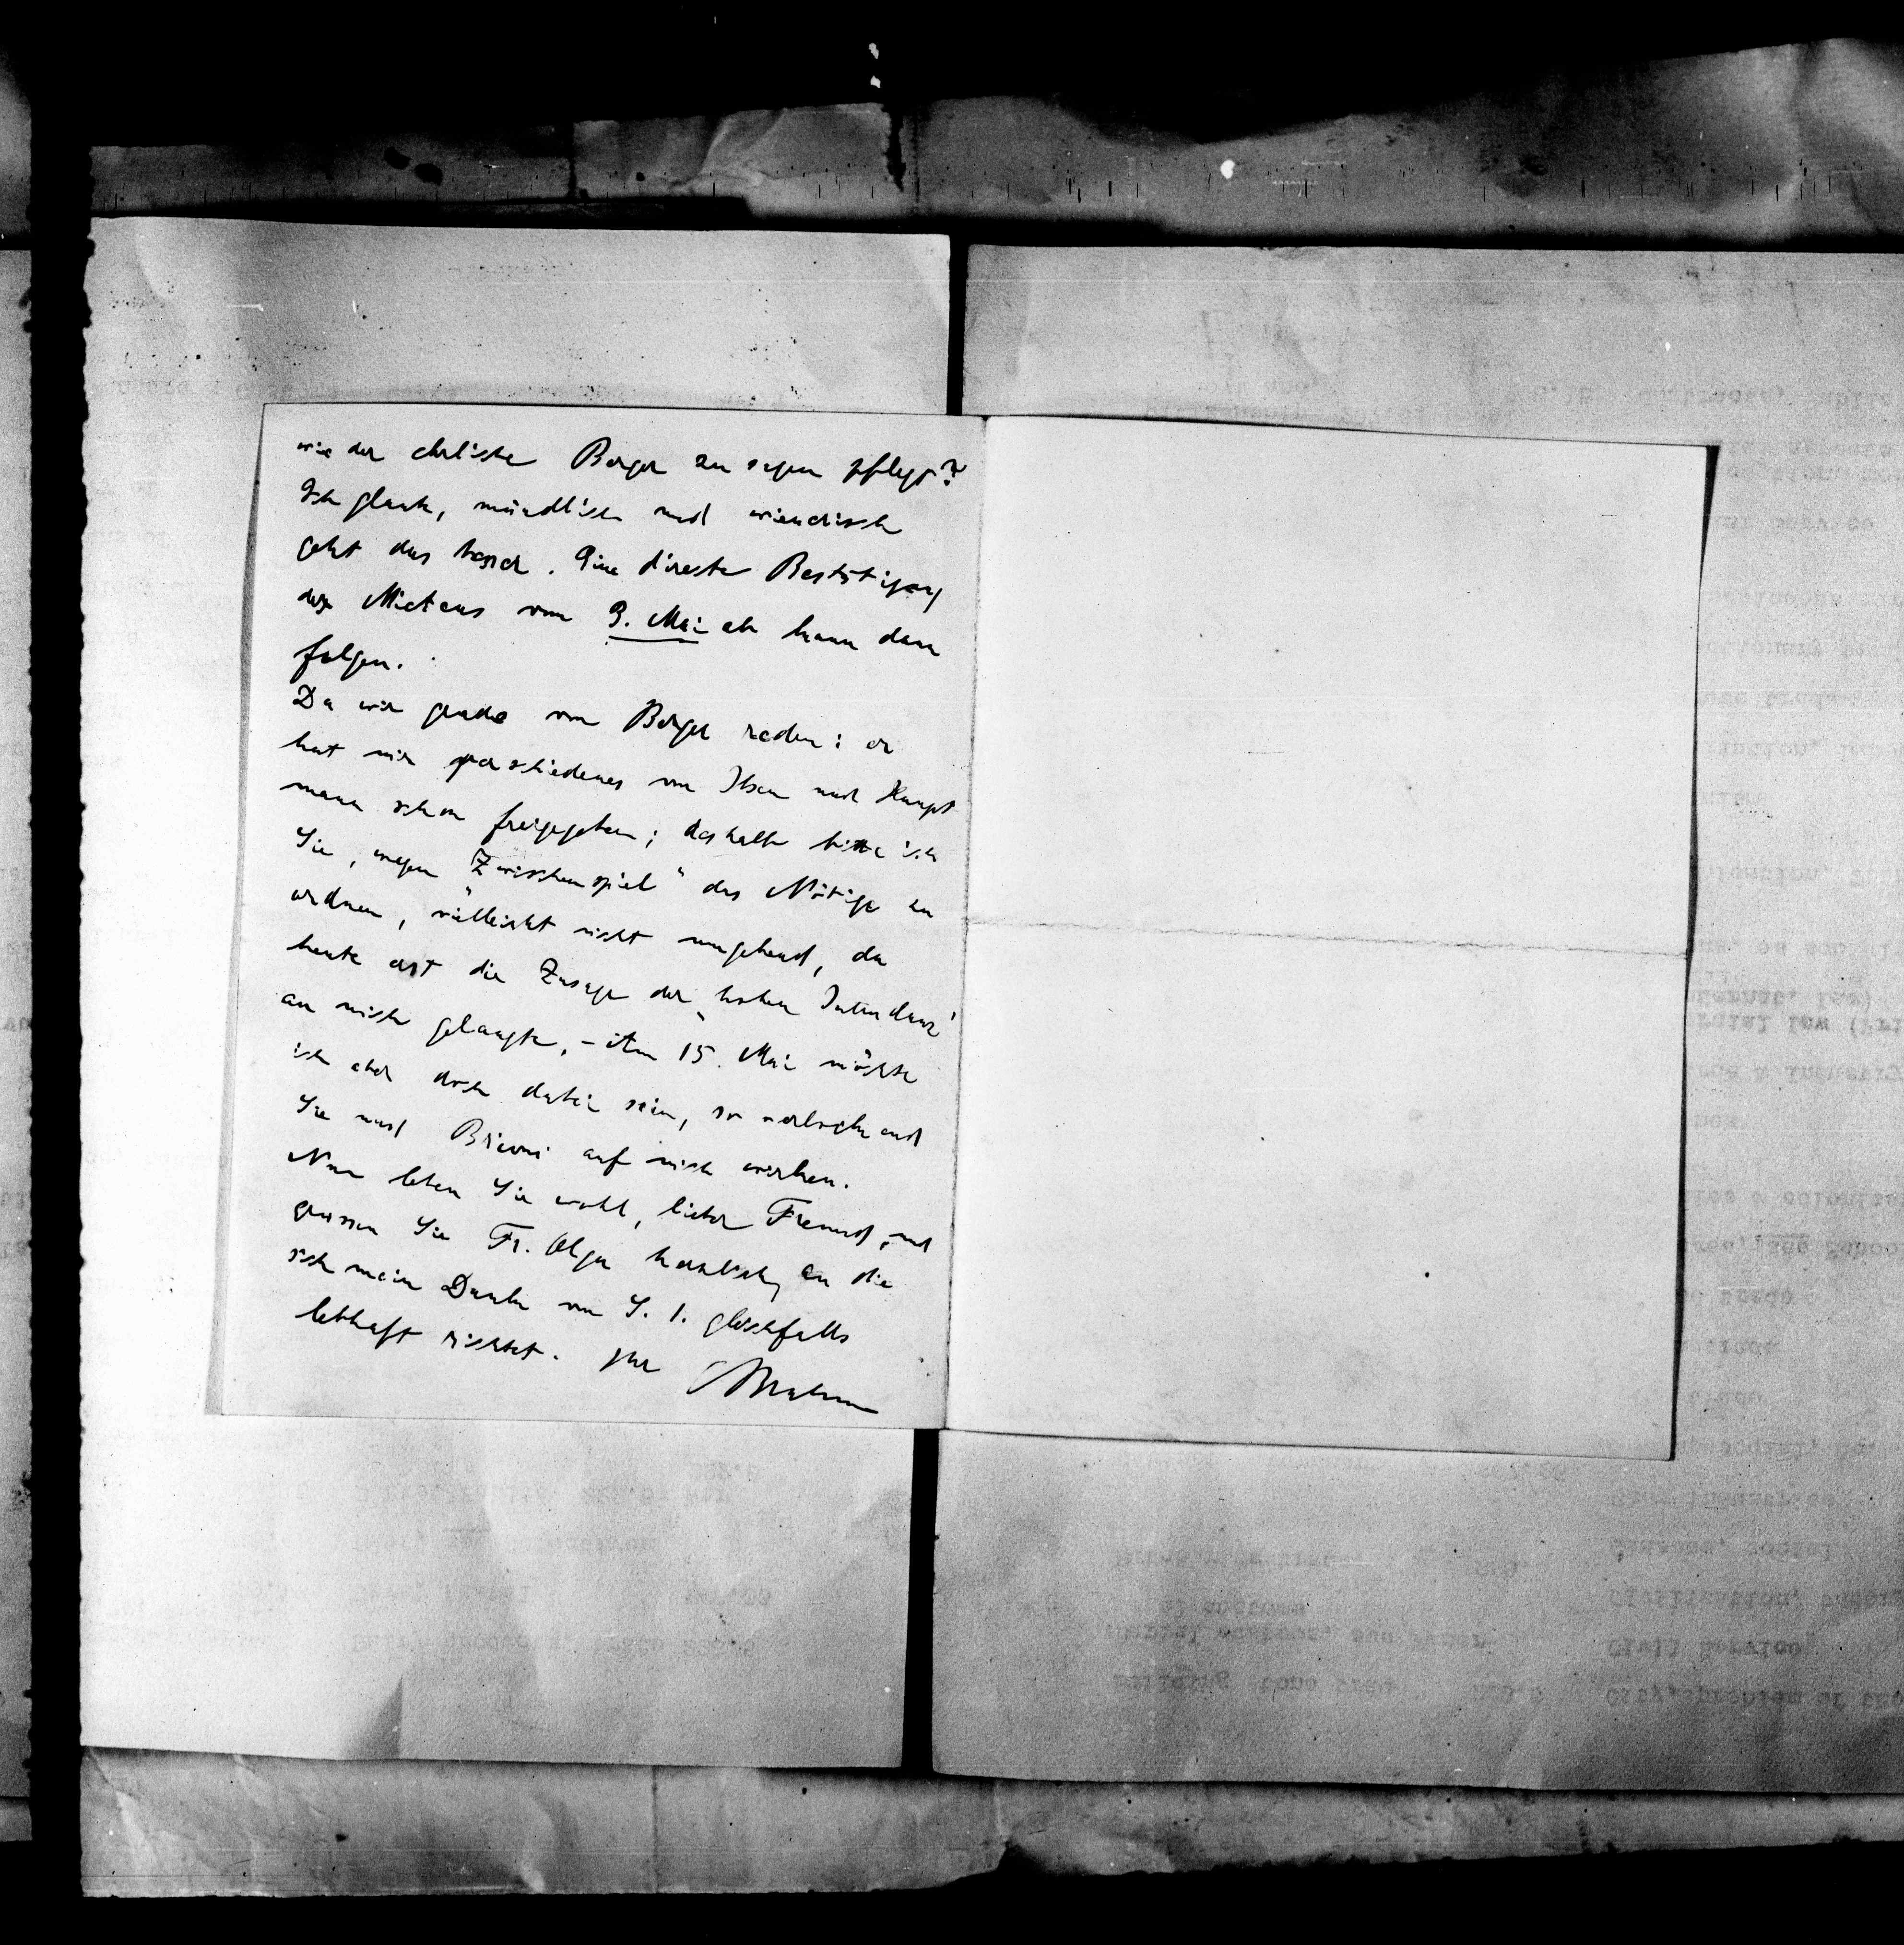 wie der ehrliche Berger zu sagen pflegt?
Ich glaube, mündlich und wienerisch
geht das besser. Eine direkte Bestätigung
des Mietens vom 9. Mai ab kann dann
folgen.
Da wir grade von Berger reden: er
hat mir verschiedenes von Ibsen und Haupt
mann schon freigegeben; deshalb bitte ich
Sie, wegen "Zwischenspiel" das Nötige zu
ordnen, vielleicht nicht umgehend, da
heute erst die Zusage der "hohen Intendanz"
an mich gelangte. – Am 15. Mai möchte
ich aber doch dabei sein, so verlockend
Sie und Brioni auf mich wirken.
Nun leben Sie wohl, lieber Freund, und
grüssen Sie Fr. Olga herzlich, an die
sich mein Dank vom gleichfalls
lebhaft richtet. Ihr Brahm